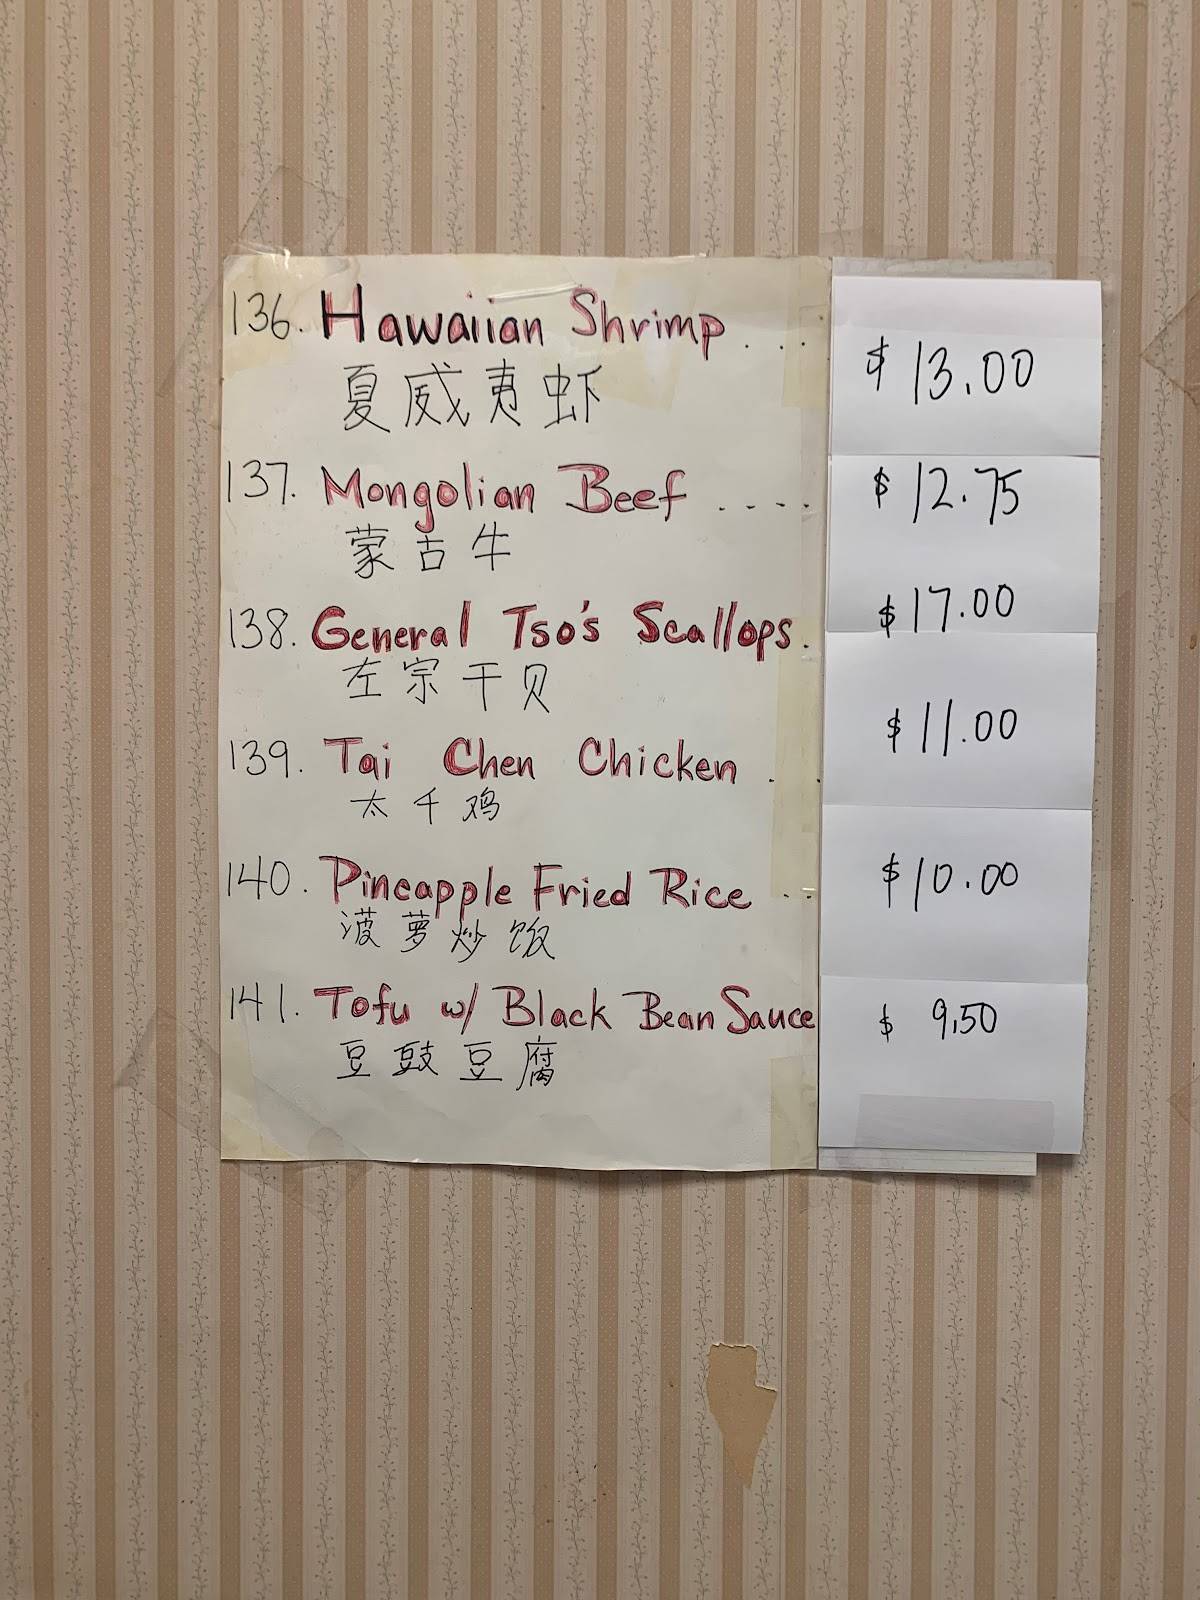 136. Hawaiian Shrimp . . . $13.00
夏威夷虾
137. Mongolian Beef . . . . $12.75
蒙古牛
138. General Tso's Scallops. $17.00
左宗干贝
139. Tai Chen Chicken . . $11.00
太千鸡
140. Pineapple Fried Rice . . . $10.00
菠萝炒饭
141. Tofu w/ Black Bean Sauce $9.50
豆豉豆腐